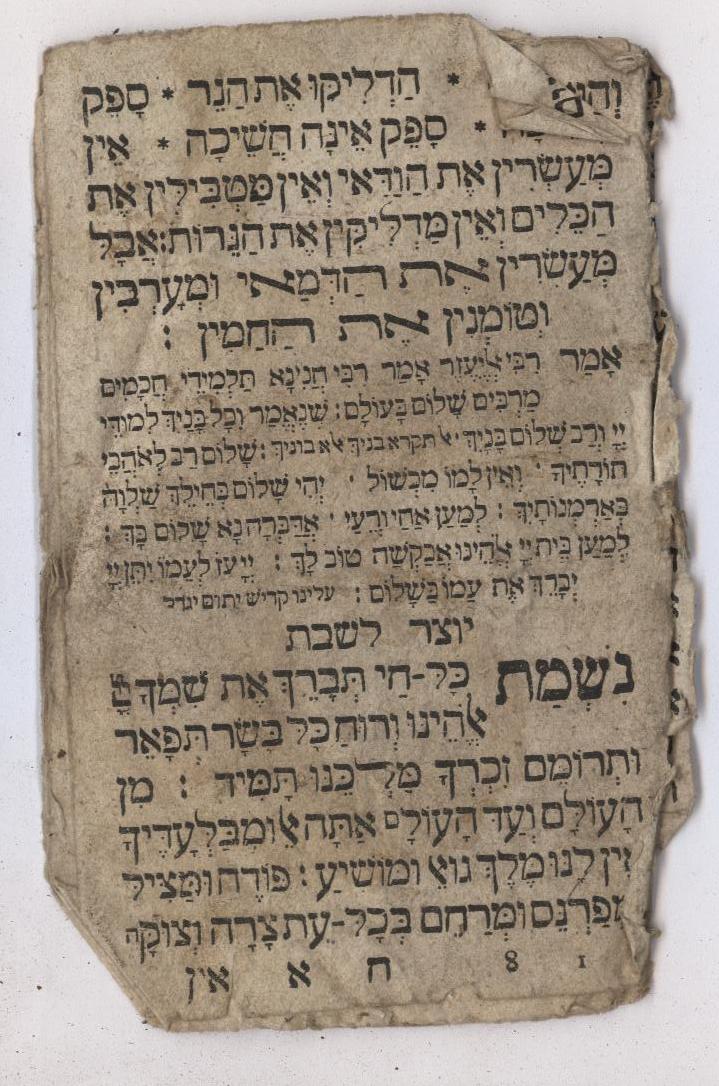 הַדְלִיקוּ אֶת הַנֵר * סָפֵק
סָפֵק אֵינָה חֲשֵׁיכָה * אֵין
מְעַשְּׂרִין אֶת הַוַדַּאי וְאֵין מַטְבִּילִין אֶת
הַכֵּלִים וְאֵין מַדְלִיקִין אֶת הַנֵּרוֹת: אֲבָל
מְעַשְּׂרִין אֶת הַדְּמַאי וּמְעָרְבִין
וְטוֹמְנִין אֶת הַחַמִּין :
אָמַר רִבִּי אֱלִיעֶזֶר אָמַר רִבִּי חֲנִינָא תַּלְמִידֵי חֲכָמִים
מַרְבִּים שָׁלוֹם בָּעוֹלָם: שֶׁנֶּאֱמַר וְכָל בָּנַיִךְ לִמּוּדֵי
יְיָ וְרַב שְׁלוֹם בָּנָיִךְ · אל תקרא בניך אלא בוניך : שָׁלוֹם רַב לְאֹהֲבֵי
תוֹרָתֶיךָ · וְאֵין לָמוֹ מִכְשׁוֹל · יְהִי שָׁלוֹם בְּחֵילֵךְ שַׁלְוָה
בְּאַרְמְנוֹתָיִךְ : לְמַעַן אַחַי וְרֵעָי · אֲדַבְּרָה נָא שָׁלוֹם בָּךְ :
לְמַעַן בֵּית יְיָ אֱלֹהֵינוּ אֲבַקְשָׁה טוֹב לָךְ : יְיָ עֹז לְעַמּוֹ יִתֵּן יְיָ
יְבָרֵךְ אֶת עַמּוֹ בַשָּׁלוֹם : עלינו קדיש יתום יגדל
יוצר לשבת
נִשְׁמַת כָּל-חַי תְּבָרֵךְ אֶת שִׁמְךָ יְיָ
אֱלֹהֵינוּ וְרוּחַ כָּל בָּשָׂר תְּפָאֵר
וּתְרוֹמֵם זִכְרְךָ מַלְכֵּנוּ תָּמִיד : מִן
הָעוֹלָם וְעַד הָעוֹלָם אַתָּה אֵל וּמִבַּלְעָדֶיךָ
אֵין לָנוּ מֶלֶךְ גּוֹאֵל וּמוֹשִׁיעַ : פּוֹדֶה וּמַצִּיל
וּמְפַרְנֵס וּמְרַחֵם בְּכָל-עֵת צָרָה וְצוּקָה
1 8 ח א אין